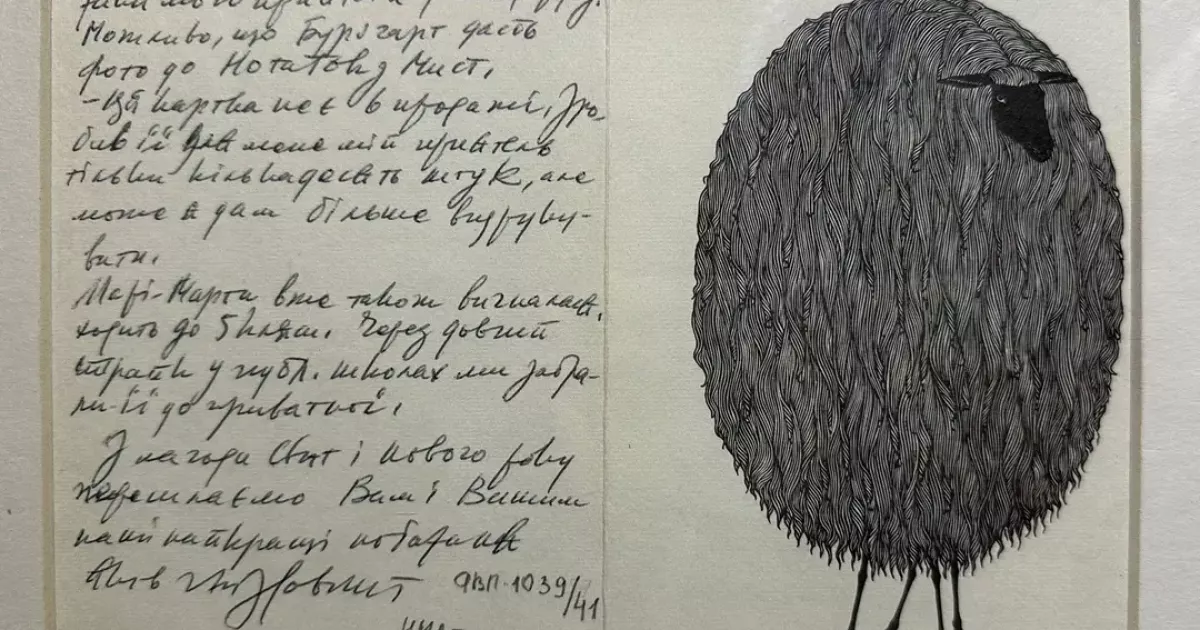 Можливо, що Бургарт дасть
фото до Нотаток з Мист.
- Ця картка не є в продажі. Зро-
бив її для мене мій приятель
тільки кільканадесять штук, але
може я дам більше видруку-
вати.
Марі-Марта вже також
ходить до 5 кляси. Через довгий
страйк у публ. школах ми забра-
ли її до приватної.
З нагоди Свят і нового року
пересилаємо Вам і Вашим
наші найкращі побажання
Яків Гніздовський ЯВП-1039/41